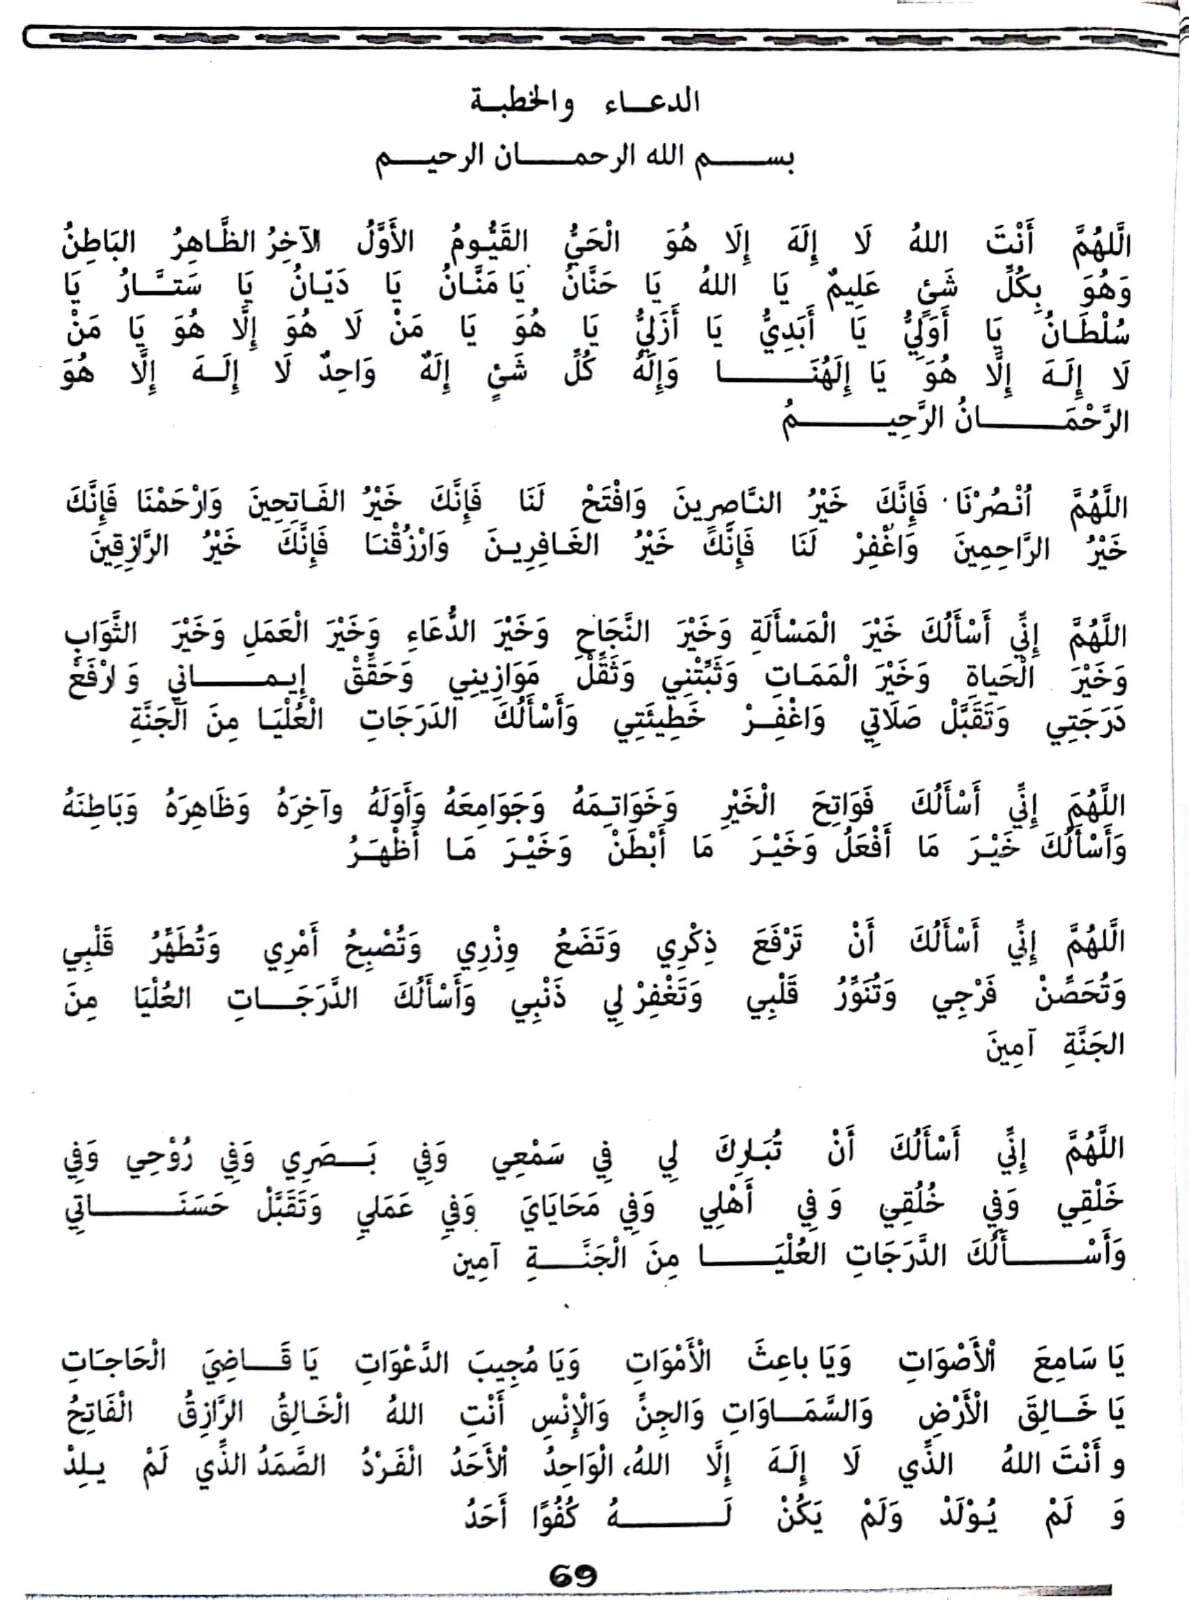 الدعـــاء والخطبـة
بســـــم الله الرحمـــــان الرحيـــم
الَّلهُمَّ أَنْتَ اللهُ لَا إِلَهَ إِلَا هُوَ الْحَيُّ القَيُّومُ الأَوَّلُ الآخِرُ الظَّاهِرُ البَاطِنُ
وَهُوَ بِكُلِّ شَئٍ عَلِيمٌ يَا اللهُ يَا حَنَّانُ يَا مَنَّانُ يَا دَيّانُ يَا سَتَّـــارُ يَا
سُلْطَانُ يَا أَوَلِيُّ يَا أَبَدِيُّ يَا أَزَلِيُّ يَا هُوَ يَا مَنْ لَا هُوَ إِلَّا هُوَ يَا مَنْ
لَا إِلَـهَ إِلَّا هُوَ يَا إِلَهُنَـــــــــا وَإِلَهُ كُلِّ شَئٍ إِلَهٌ وَاحِدٌ لَا إِلَـهَ إِلَّا هُوَ
الرَّحْمَـــــــانُ الرَّحِيـــــــمُ
اللَّهُمَّ اُنْصُرْنَا فَإِنَّكَ خَيْرُ النـَّاصِرِينَ وَافْتَحْ لَنَا فَإِنَّكَ خَيْرُ الفَـاتِحِينَ وَارْحَمْنَا فَإِنَّكَ
خَيْرُ الرَّاحِمِينَ وَاغْفِرْ لَنَا فَإِنَّكَ خَيْرُ الغَـافِرِيـنَ وَارْزُقْنـَا فَإِنَّكَ خَيْرُ الرَّازِقِينَ
اللَّهُمَّ إِنِّي أَسْأَلُكَ خَيْرَ الْمَسْأَلَةِ وَخَيْرَ النَّجَاحِ وَخَيْرَ الدُّعَاءِ وَخَيْرَ الْعَمَلِ وَخَيْرَ الثَّوَابِ
وَخَيْرَ الْحَيَاةِ وَخَيْرَ الْمَمَـاتِ وَثَبِّتْنِي وَثَقِّلْ مَوَازِينِي وَحَقِّقْ إِيـمَــــــانِي وَ ارْفَعْ
دَرَجَتِي وَتَقَبَّلْ صَلَاتِي وَاغْفِـرْ خَطِيئَتِي وَأَسْأَلُكَ الدَرَجَاتِ الْعُلْيَـا مِنَ الْجَنَّةِ
اللَّهُمَ إِنِّي أَسْأَلُكَ فَوَاتِحَ الْخَيْرِ وَخَوَاتِـمَهُ وَجَوَامِعَهُ وَأَوَلَهُ وآخِرَهُ وَظَاهِرَهُ وَبَاطِنَهُ
وَأَسْأَلُكَ خَيْـرَ مَا أَفْعَلُ وَخَيْـرَ مَا أَبْطَنْ وَخَيْـرَ مَـا أَظْهَـرُ
الَّلهُمَّ إِنِّي أَسْأَلُكَ أَنْ تَرْفَعَ ذِكْرِي وَتَضَعُ وِزْرِي وَتُصْبِحُ أَمْرِي وَتُطَهِّرُ قَلْبِي
وَتُحَصِّنْ فَرْجِي وَتُنَوِّرُ قَلْبِي وَتَغْفِرْ لِي ذَنْبِي وَأَسْأَلُكَ الدَّرَجَـــاتِ العُلْيَا مِنَ
الجَنَّةِ آمِينَ
اللَّهُمَّ إِنِّي أَسْأَلُكَ أَنْ تُبَارِكَ لِي فِي سَمْعِي وَفِي بَـــصَرِي وَفِي رُوْحِي وَفِي
خَلْقِي وَفِي خُلُقِي وَ فِي أَهْلِي وَفِي مَحَايَايَ وَفِي عَمَلِي وَتَقَبَّلْ حَسَنَـــــــاتِي
وَأَسْـــــأَلُكَ الدَّرَجَاتِ العُلْيَـــــــا مِنَ الْجَنَّـــةِ آمِين
يَا سَامِعَ اْلأَصْوَاتِ وَيَا باعِثَ الْأَمْوَاتِ وَيَا مُجِيبَ الدَّعْوَاتِ يَا قَـــاضِيَ الْحَاجَـاتِ
يَا خَـــالِقَ الْأَرْضِ وَالسَّمَـاوَاتِ وَالجِنِّ وَالْإِنْسِ أَنْتِ اللهُ الْخَـالِقُ الرَّازِقُ الْفَاتِحُ
و أَنْتَ اللهُ الذِّي لَا إِلَـهَ إِلَّا اللهُ، الْوَاحِدُ اْلأَحَدُ الْفَرْدُ الصَّمَدُ الذِّي لَمْ يـلِدْ
وَ لَمْ يُـوْلَدْ وَلَمْ يَكُنْ لَـــــــهُ كُفُوًا أَحَدُ
69